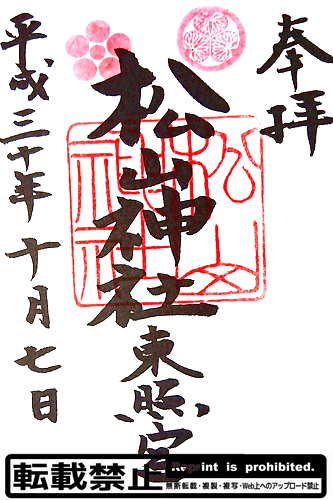 奉拝
松山神社
東照宮
平成三十年十月七日
松山神社
転載禁止
Reprint is prohibited.
無断転載・複製・複写・Web上へのアップロード禁止